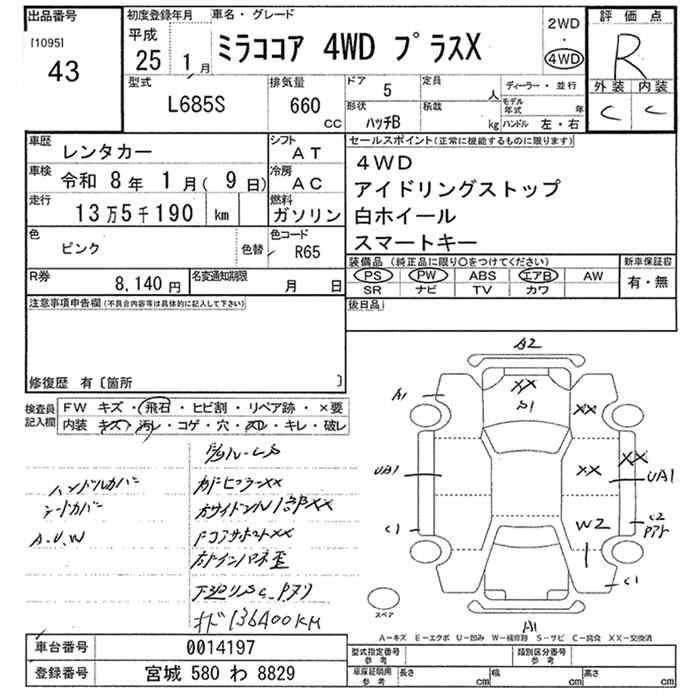 出品番号
[1095]
43
初度登録年月
平成
25 1月
車名・グレード
ミラココア 4WD プラスX
2WD
・
4WD
評価点
R
外装 内装
C C
型式
L685S
排気量
660
cc
ドア
5
定員
人
形状
ハッチB
積載
kg
ディーラー・並行
モデル年式
年
ハンドル 左・右
車歴
レンタカー
シフト
AT
車検
令和 8年 1月( 9日)
冷房
AC
走行
13万5千190 km
燃料
ガソリン
色
ピンク
色替
色コード
R65
R券
8,140円
名変通知期限
月 日
セールスポイント(正常に機能するものに限ります)
4WD
アイドリングストップ
白ホイール
スマートキー
装備品 (純正品に限り○をつけてください)
PS PW ABS エアB AW
SR ナビ TV カワ
新車保証書
有・無
後日品
注意事項申告欄(不具合内容等は具体的に記入して下さい)
修復歴 有〔箇所 〕
検査員
記入欄
FW キズ・飛石・ヒビ割・リペア跡・×要
内装 キズ・汚レ・コゲ・穴・スレ・キレ・破レ
ハンドルカバー
シートカバー
A.U.W
オド136400KM
A2
A1
XX
B1
XX
UA1
XX
XX
UA1
C1
W2
C2
C1
A1
スペア
A−キズ E−エクボ U−凹み W−補修跡 S−サビ C−腐食 XX−交換済
車台番号
0014197
登録番号
宮城 580 わ 8829
型式指定番号
参考
類別区分番号
参考
車庫証明用
参考
長さ
cm
幅
cm
高さ
cm